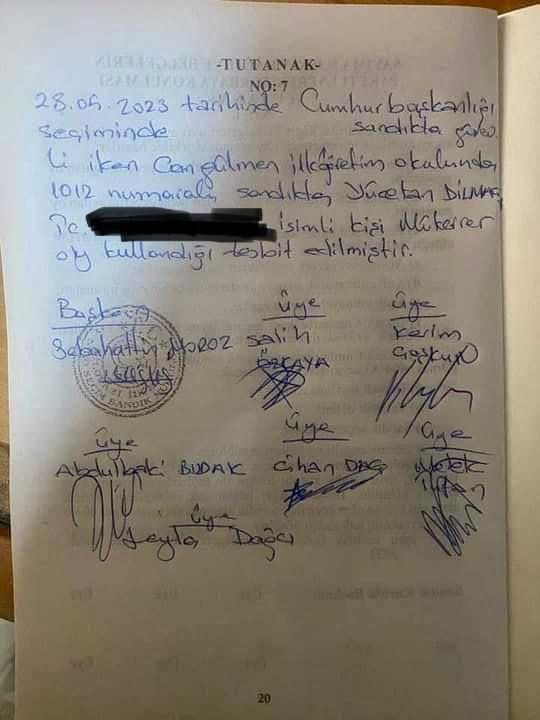 -TUTANAK-
NO: 7
28.05.2023 tarihinde Cumhurbaşkanlığı
seçiminde sandıkta görev
li iken Can gülmen ilköğretim okulunda
1012 numaralı sandıkta, Yücetan DİLMAÇ
Tc. isimli kişi Mükerrer
oy kullandığı tesbit edilmiştir.
Başkan Üye Üye
Sebahattin NOROZ Salih Kerim
ÖZKAYA Coşkun
Üye Üye Üye
Abdulbaki BUDAK Cihan DAĞ Melek
Üye
Leyla Dağcı
20